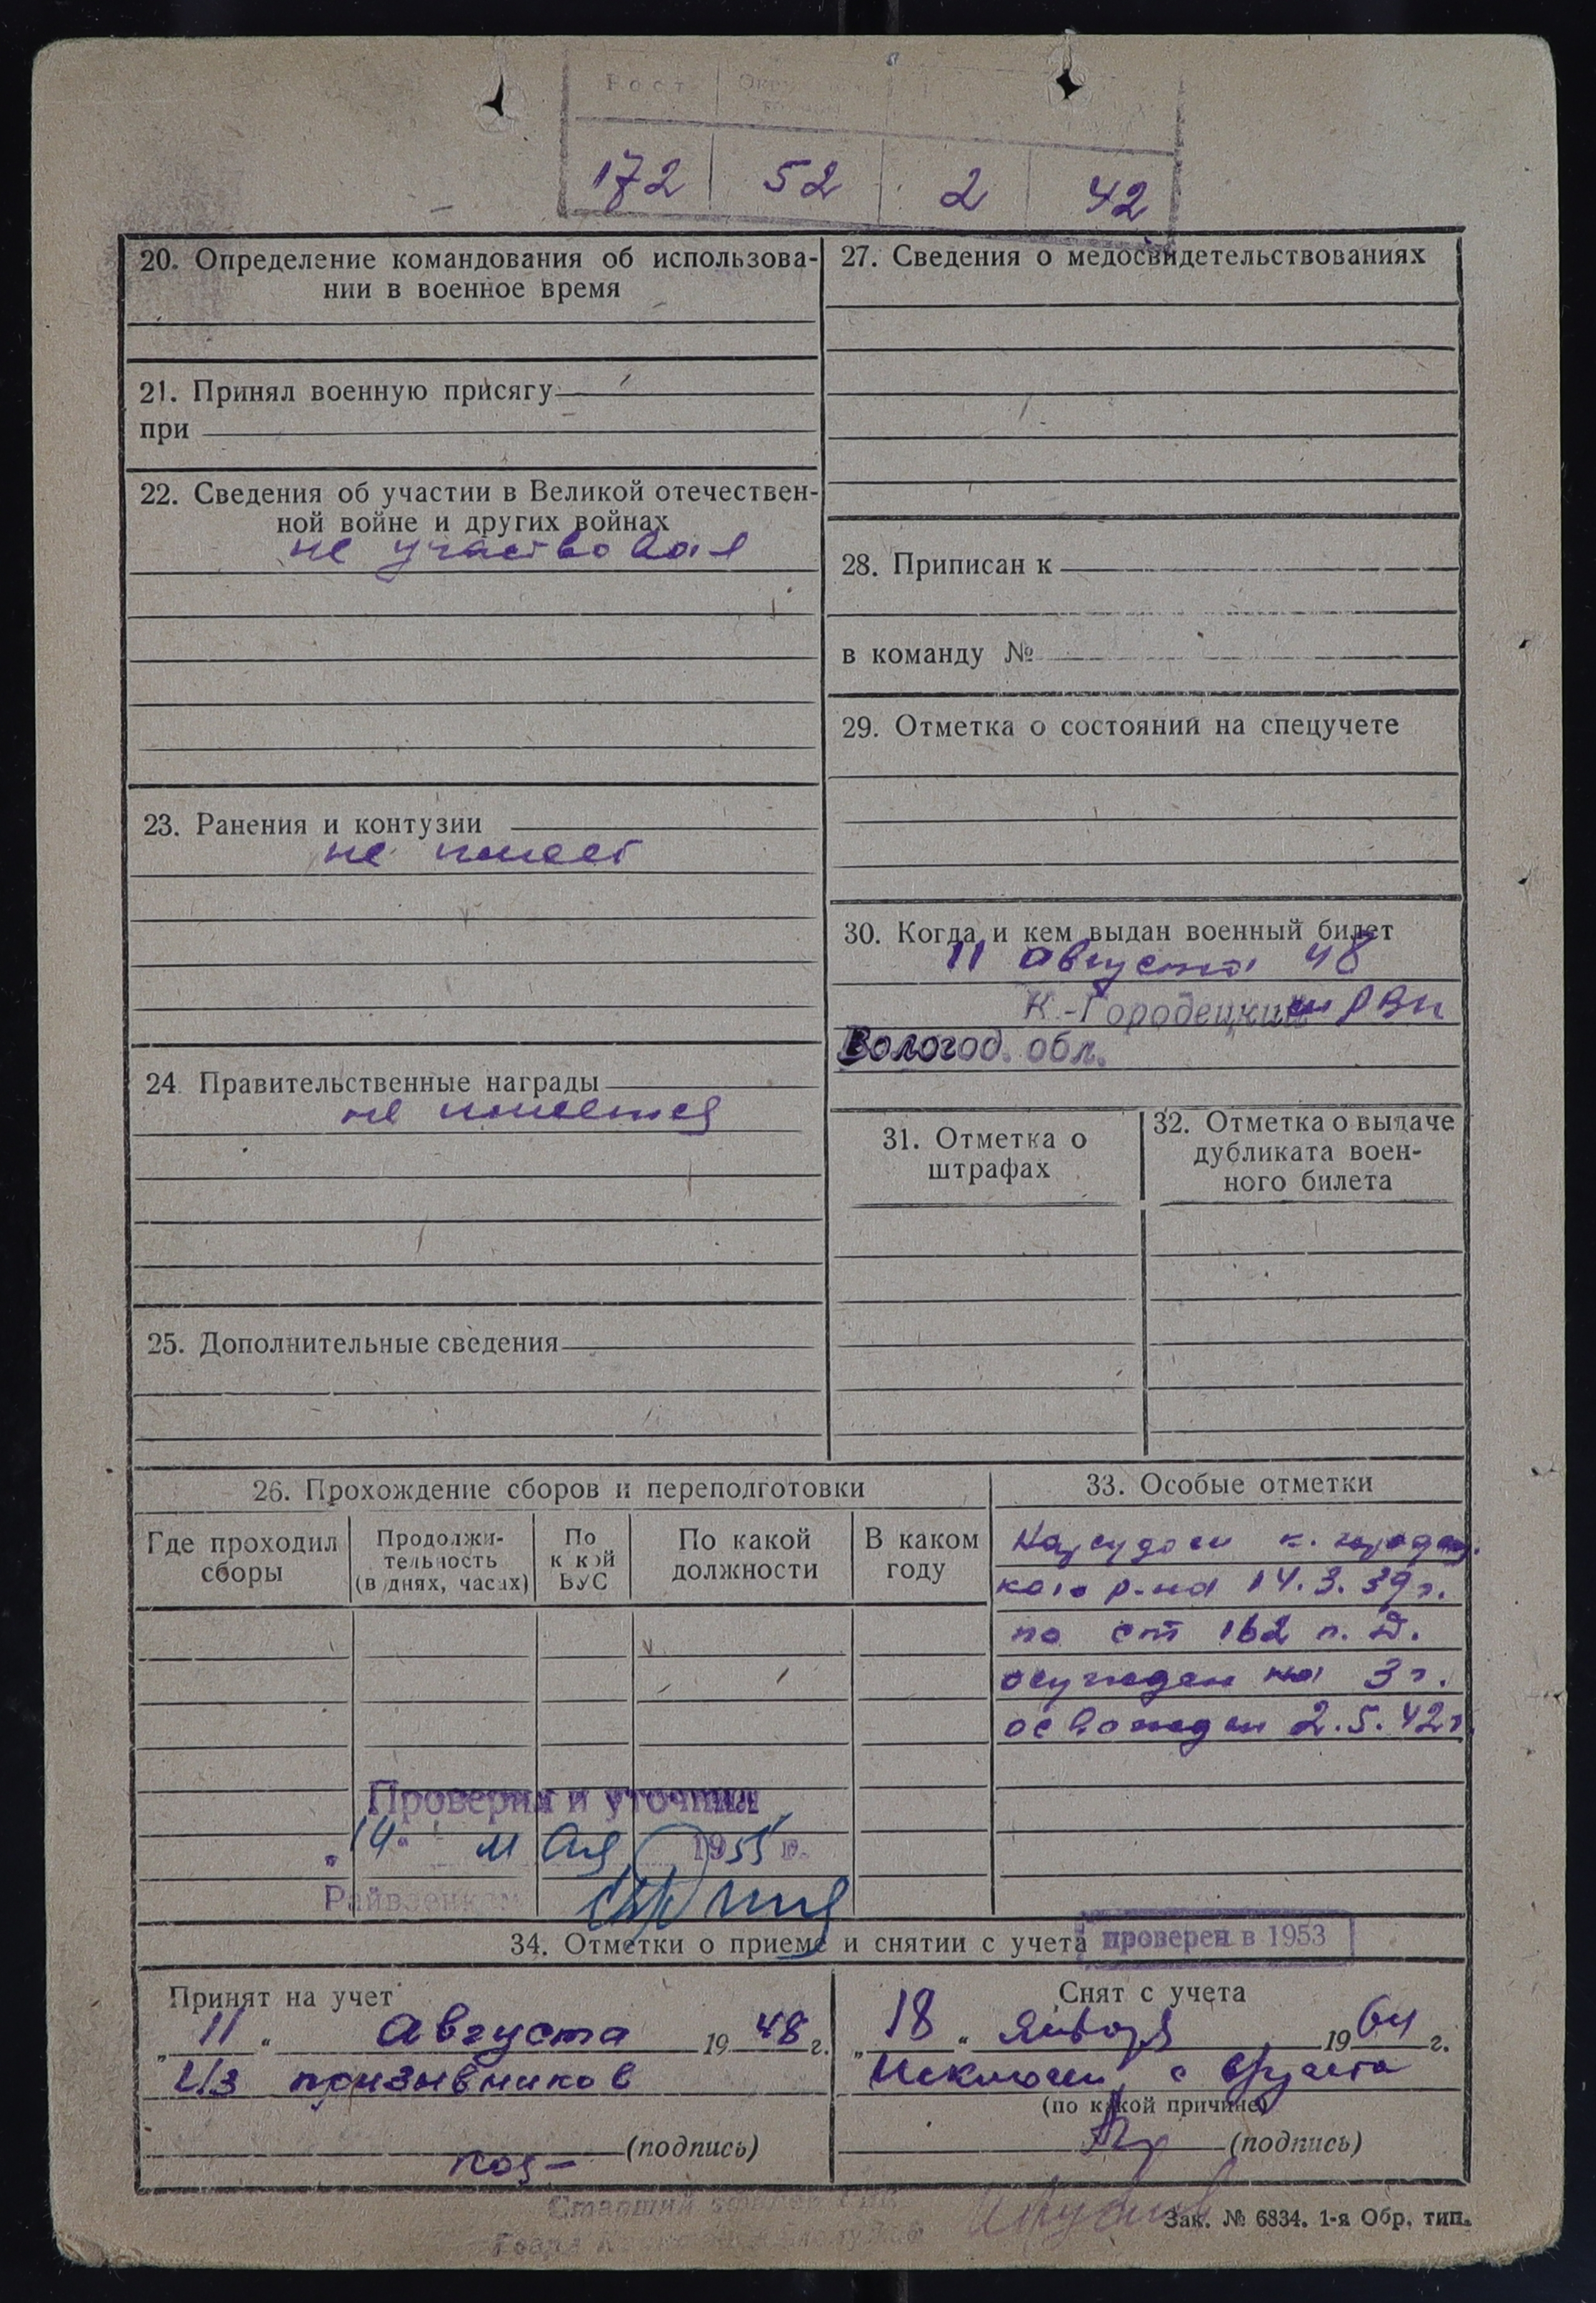 Рост
172 52 2 42
20. Определение командования об использова-
нии в военное время
21. Принял военную присягу
при
22. Сведения об участии в Великой отечествен-
ной войне и других войнах
не участвовал
23. Ранения и контузии
не имеет
24. Правительственные награды
не имеется
25. Дополнительные сведения
27. Сведения о медосвидетельствованиях
28. Приписан к
в команду №
29. Отметка о состоянии на спецучете
30. Когда и кем выдан военный билет
11 августа 48
К.-Городецким РВК
Вологод. обл.
31. Отметка о
штрафах
32. Отметка о выдаче
дубликата воен-
ного билета
26. Прохождение сборов и переподготовки
Где проходил
сборы
Продолжи-
тельность
(в днях, часах)
По
какой
ВУС
По какой
должности
В каком
году
33. Особые отметки
Нарсудом к. городец
кого р-на 14.3.39г.
по ст 162 п. Д.
осужден на 3 г.
освожден 2.5.42г.
Проверил и уточнил
"14" мая 1955 г.
Райвоенком
34. Отметки о приеме и снятии с учета
проверен в 1953
Принят на учет
"11" августа 1948 г.
Из призывников
(подпись)
Снят с учета
"18" января 1964 г.
Исключен с
(по какой причине)
(подпись)
Старший
Зак. № 6834. 1-я Обр. тип.